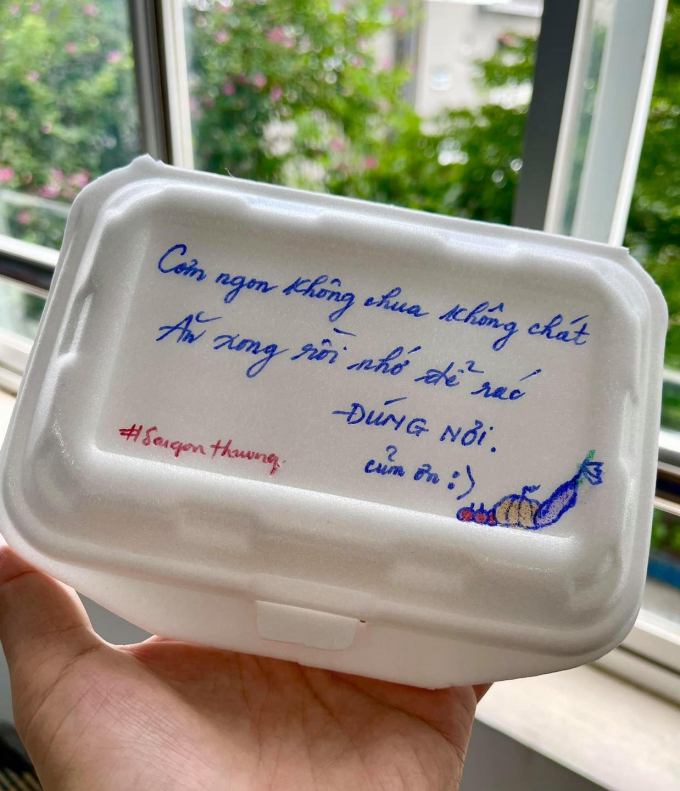 Cơm ngon không chua không chát
Ăn xong rồi nhớ để rác
ĐÚNG NƠI.
củm ơn :)
#Saigonthương